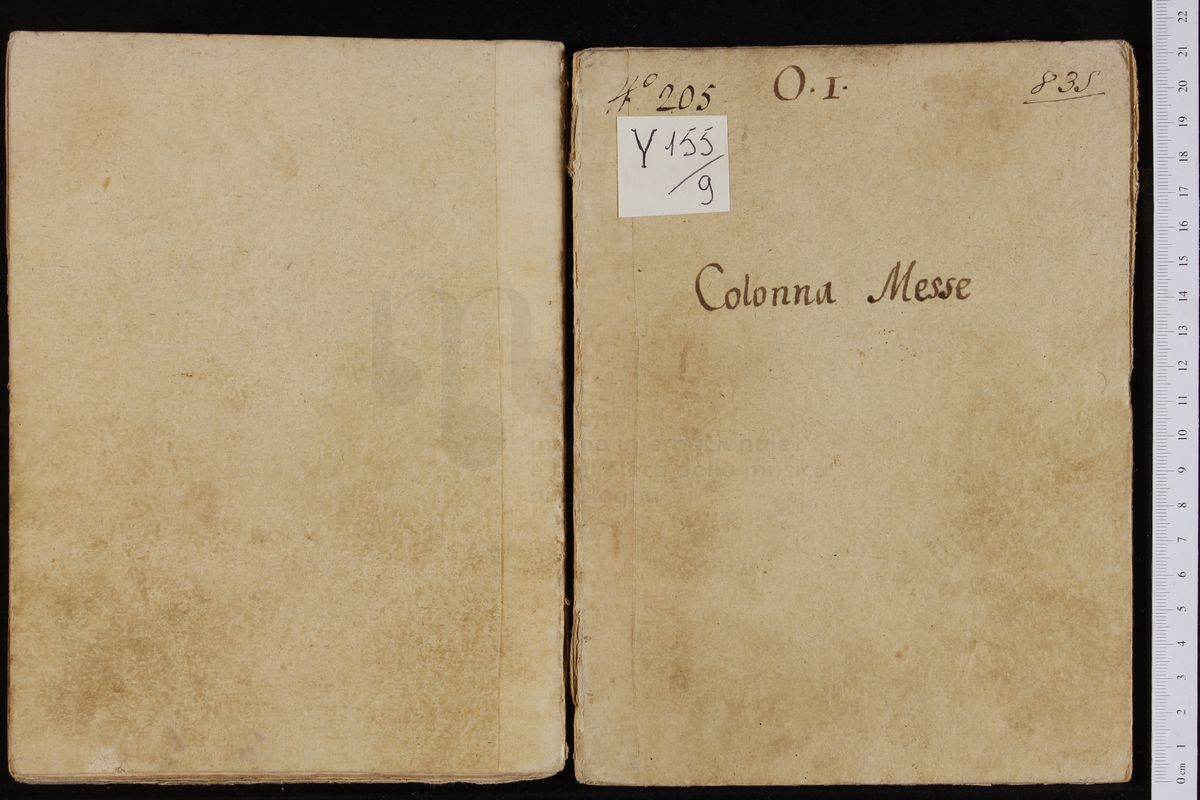 O. I.
4º 205
835
Y 155/9
Colonna Messe
museo internazionale
biblioteca della musica
di bologna
22
21
20
19
18
17
16
15
14
13
12
11
10
9
8
7
6
5
4
3
2
1
0 cm